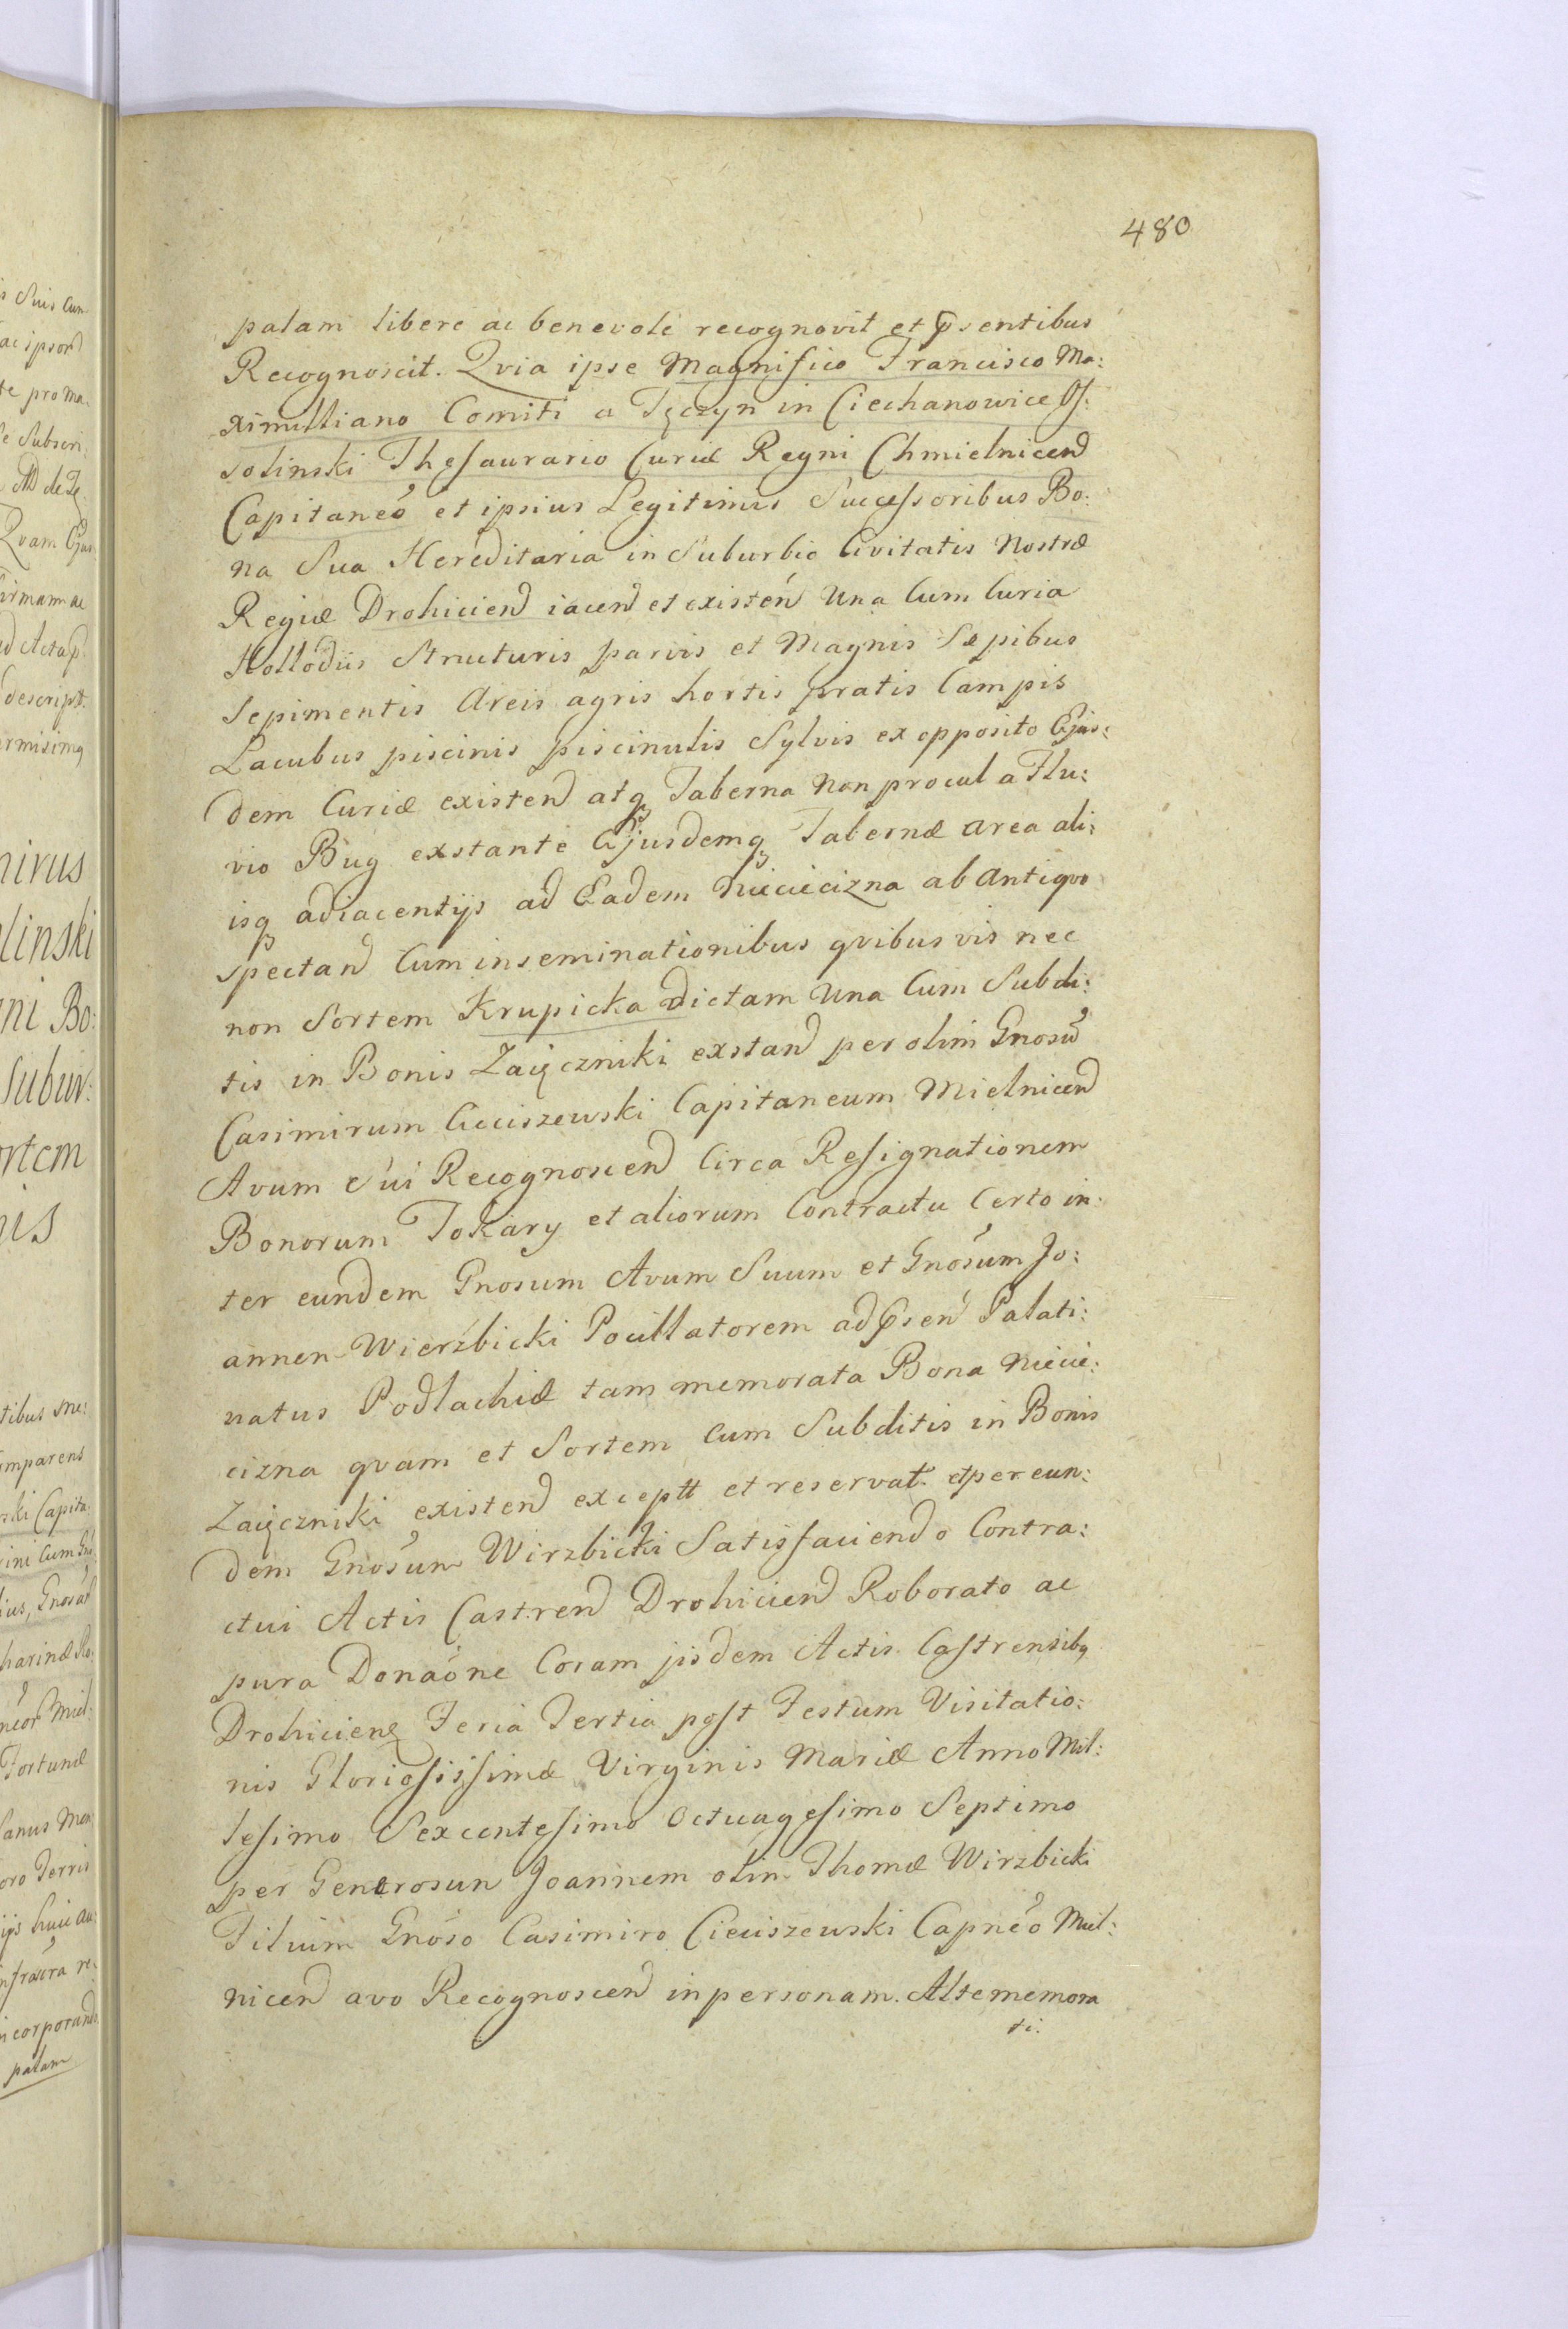 480
palam libere ac benevole recognovit et p̄sentibus
Recognoscit. Qvia ipse Magnifico Francisco Ma:
ximilliano Comiti a Tęczyn in Ciechanowice Os:
solinski Thesaurario Curiæ Regni Chmielnicen
Capitaneo et ipsius Legitimis Successoribus Bo:
na Sua Hereditaria in Suburbio Civitatis Nostræ
Regiæ Drohicien iacen et existen Una Cum Curia
Hollodiis Structuris parvis et Magnis Sæpibus
Sepimentis Areis agris hortis pratis Campis
Lacubus piscinis piscinulis Sylvis ex opposito Ejus:
dem Curiæ existen atq Taberna Non procul a Flu:
vio Bug exstante Ejusdemq Tabernæ area ali:
isq adiacentijs ad Eadem Niecieczna ab Antiqvo
spectan Cum inseminationibus qvibusvis nec
non Sortem Krupicka dictam Una Cum Subdi:
tis in Bonis Zaięczniki exstan per olim Gnosu
Casimirum Cieciszewski Capitaneum Mielnicen
Avum Sui Recognoscen Circa Resignationem
Bonorum Tokary et aliorum Contractu Certo in:
ter eundem Gnosum Avum Suum et Gnosum Jo:
annen Wierzbicki Pocillatorem ad p̄sen Palati:
natus Podlachiæ tam memorata Bona Niecie:
cizna qvam et Sortem Cum Subditis in Bonis
Zaięczniki existen exceptt et reservat. et per eun:
dem Gnosum Wirzbicki Satisfaciendo Contra:
ctui Actis Castren Drohicien Roborato ac
pura Donaone Coram jisdem Actis Castrensibq
Drohicienq Feria Tertia post Festum Visitatio:
nis Gloriosissimæ Virginis Mariæ Anno Mil:
lesimo Sexcentesimo Octuagesimo Septimo
per Generosun Joannem olim Thomæ Wirzbicki
Filium Gnoso Casimiro Cieciszewski Capneo Miel:
nicen avo Recognoscen in personam. Altememora
ti.